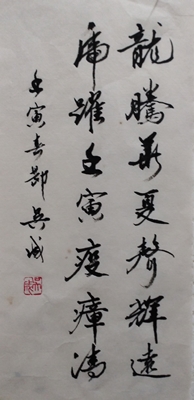 龍騰華夏聲輝遠
虎躍壬寅疫瘴清
壬寅春節 吳成